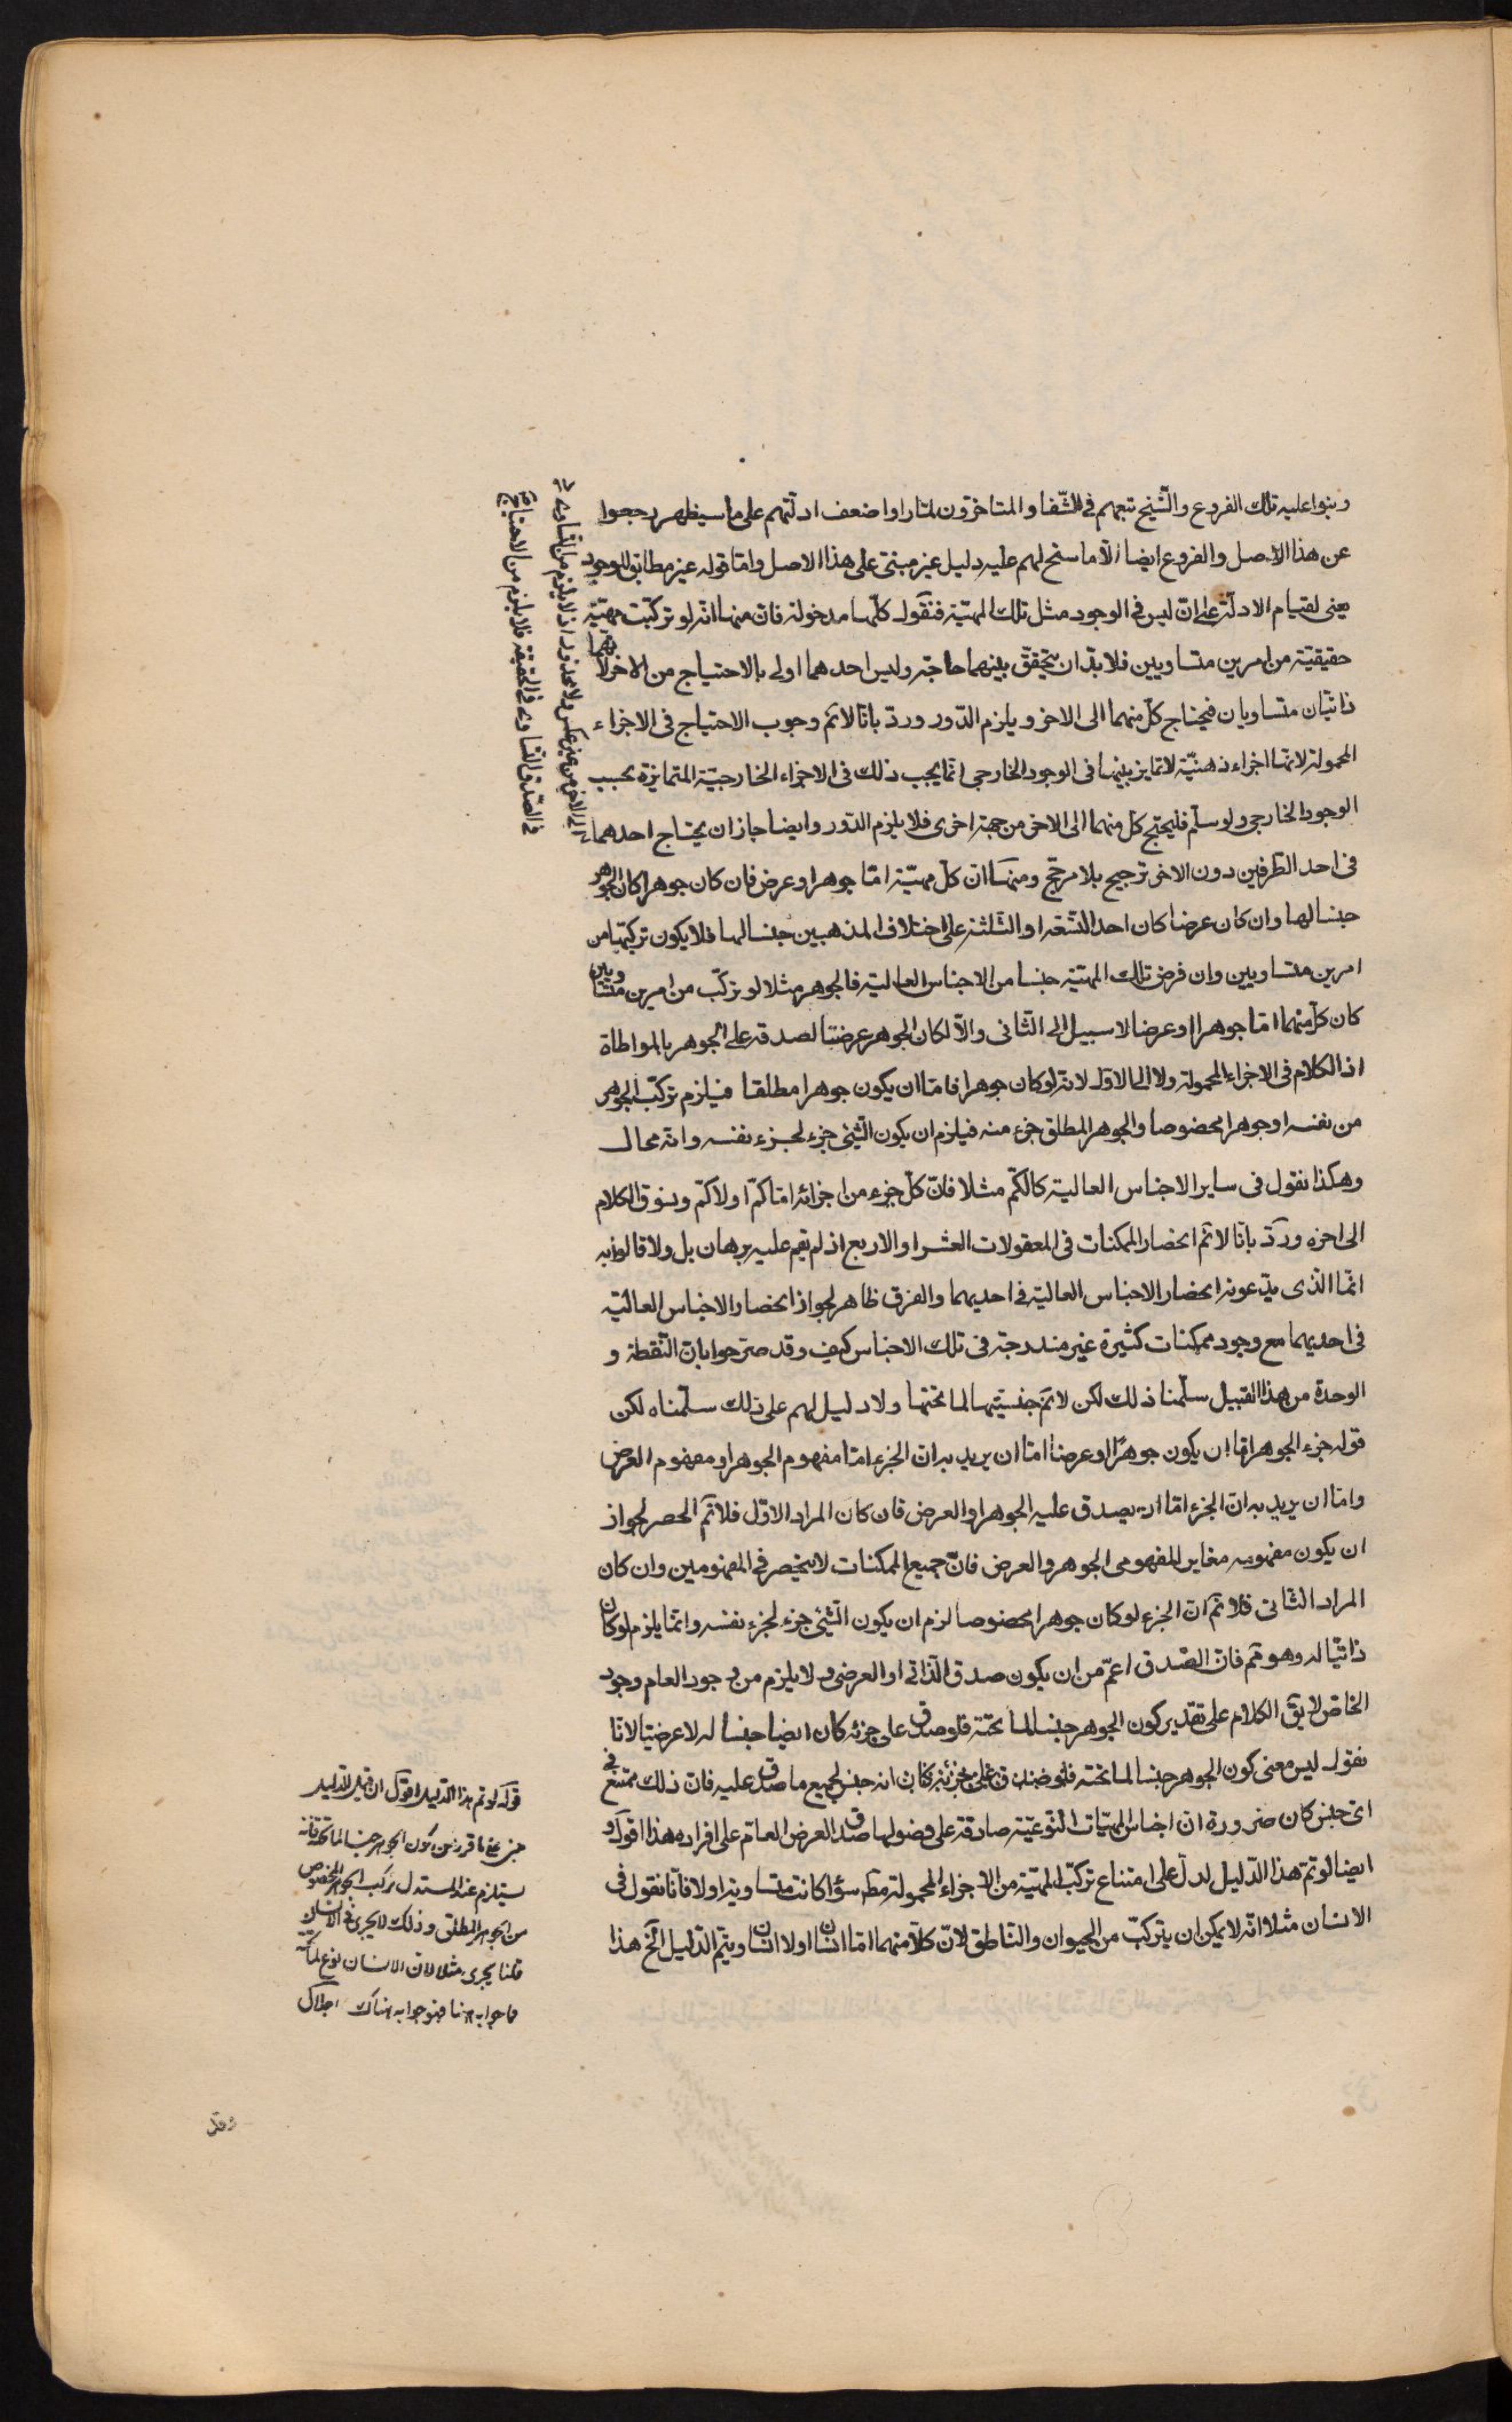 وبنوا عليه تلك الفروع والشيخ تبعهم فى الشفا والمتاخرون لما راوا ضعف ادلتهم على ما سيظهر رجعوا
عن هذا الاصل والفروع ايضا الا ما سنح لهم عليه دليل غير مبنى على هذا الاصل واما قوله غير مطابق للوجود
يعنى لقيام الادلة على ان ليس فى الوجود مثل تلك المهية فنقول كلها مدخولة فان منها انه لو تركبت مهية
حقيقية من امرين متساويين فلا بد ان يتحقق بينهما حاجة وليس احدهما اولى بالاحتياج من الاخر لانهما
ذاتيان متساويان فيحتاج كل منهما الى الاخر ويلزم الدور ورد بانا لا نم وجوب الاحتياج فى الاجزاء
المحمولة لانها اجزاء ذهنية لا تمايز بينها فى الوجود الخارجى انما يجب ذلك فى الاجزاء الخارجية المتمايزة بحسب
الوجود الخارجى ولو سلم فليحتج كل منهما الى الاخر من جهة اخرى فلا يلزم الدور وايضا جاز ان يحتاج احدهما
الى الاخر من غير عكس ولا محذور اذ لا يلزم من التساوى
فى الصدق التساوى فى الحقيقة فلا يلزم من الاحتياج
فى احد الطرفين دون الاخر ترجيح بلا مرجح ومنها ان كل مهية اما جوهر او عرض فان كان جوهرا كان الجوهر
جنسا لها وان كان عرضا كان احد التسعة او الثلثة على اختلاف المذهبين جنسا لها فلا يكون تركبها من
امرين متساويين وان فرض تلك المهية جنسا من الاجناس العالية فالجوهر مثلا لو تركب من امرين متساويين
كان كل منهما اما جوهرا او عرضا لا سبيل الى الثانى والا لكان الجوهر عرضيا لصدقه على الجوهر بالمواطاة
اذ الكلام فى الاجزاء المحمولة ولا الى الاول لانه لو كان جوهرا فاما ان يكون جوهرا مطلقا فيلزم تركب الجوهر
من نفسه او جوهرا مخصوصا والجوهر المطلق جزء منه فيلزم ان يكون الشئ جزء لجزء نفسه وانه محال
وهكذا نقول فى ساير الاجناس العالية كالكم مثلا فان كل جزء من اجزائه اما كم او لا كم ونسوق الكلام
الى اخره ورد بانا لا نم انحصار الممكنات فى المقولات العشر او الاربع اذ لم يقم عليه برهان بل ولا قالوا به
انما الذى يدعونه انحصار الاجناس العالية فى احديهما والفرق ظاهر لجواز انحصار الاجناس العالية
فى احديهما مع وجود ممكنات كثيرة غير مندرجة فى تلك الاجناس كيف وقد صرحوا بان النقطة و
الوحدة من هذا القبيل سلمنا ذلك لكن لا نم جنسيتها لما تحتها ولا دليل لهم على ذلك سلمناه لكن
قوله جزء الجوهر اما ان يكون جوهرا او عرضا اما ان يريد به ان الجزء اما مفهوم الجوهر او مفهوم العرض
واما ان يريد به ان الجزء اما ان يصدق عليه الجوهر او العرض فان كان المراد الاول فلا نم الحصر لجواز
ان يكون مفهومه مغايرا لمفهومى الجوهر والعرض فان جميع الممكنات لا ينحصر فى المفهومين وان كان
المراد الثانى فلا نم ان الجزء لو كان جوهرا مخصوصا لزم ان يكون الشئ جزء لجزء نفسه وانما يلزم لو كان
ذاتيا له وهو مم فان الصدق اعم من ان يكون صدق الذاتى او العرضى ولا يلزم من وجود العام وجود
الخاص لا يق الكلام على تقدير كون الجوهر جنسا لما تحته فلو صدق على جزئه كان ايضا جنسا له لا عرضيا لانا
نقول ليس معنى كون الجوهر جنسا لما تحته انه جنس لجميع ما صدق عليه فان ذلك ممتنع فى
اى جنس كان ضرورة ان اجناس المهيات النوعية صادقة على فصولها صدق العرض العام على افراده هذا اقول و
ايضا لو تم هذا الدليل لدل على امتناع تركب المهية من الاجزاء المحمولة مط سواء كانت متساوية او لا فانا نقول فى
الانسان مثلا انه لا يمكن ان يتركب من الحيوان والناطق لان كلا منهما اما انسان او لا انسان ويتم الدليل الخ هذا
قوله لو تم هذا الدليل اقول ان قيل الدليل
مبنى على ما قرر من كون الجوهر جنسا لما تحته فانه
يستلزم عند المستدل تركب الجوهر المخصوص
من الجوهر المطلق وذلك لا يجرى فى الانسان
قلنا يجرى مثلا لان الانسان نوع لما تحته
فما جوابه هنا فهو جوابه هناك
وقد